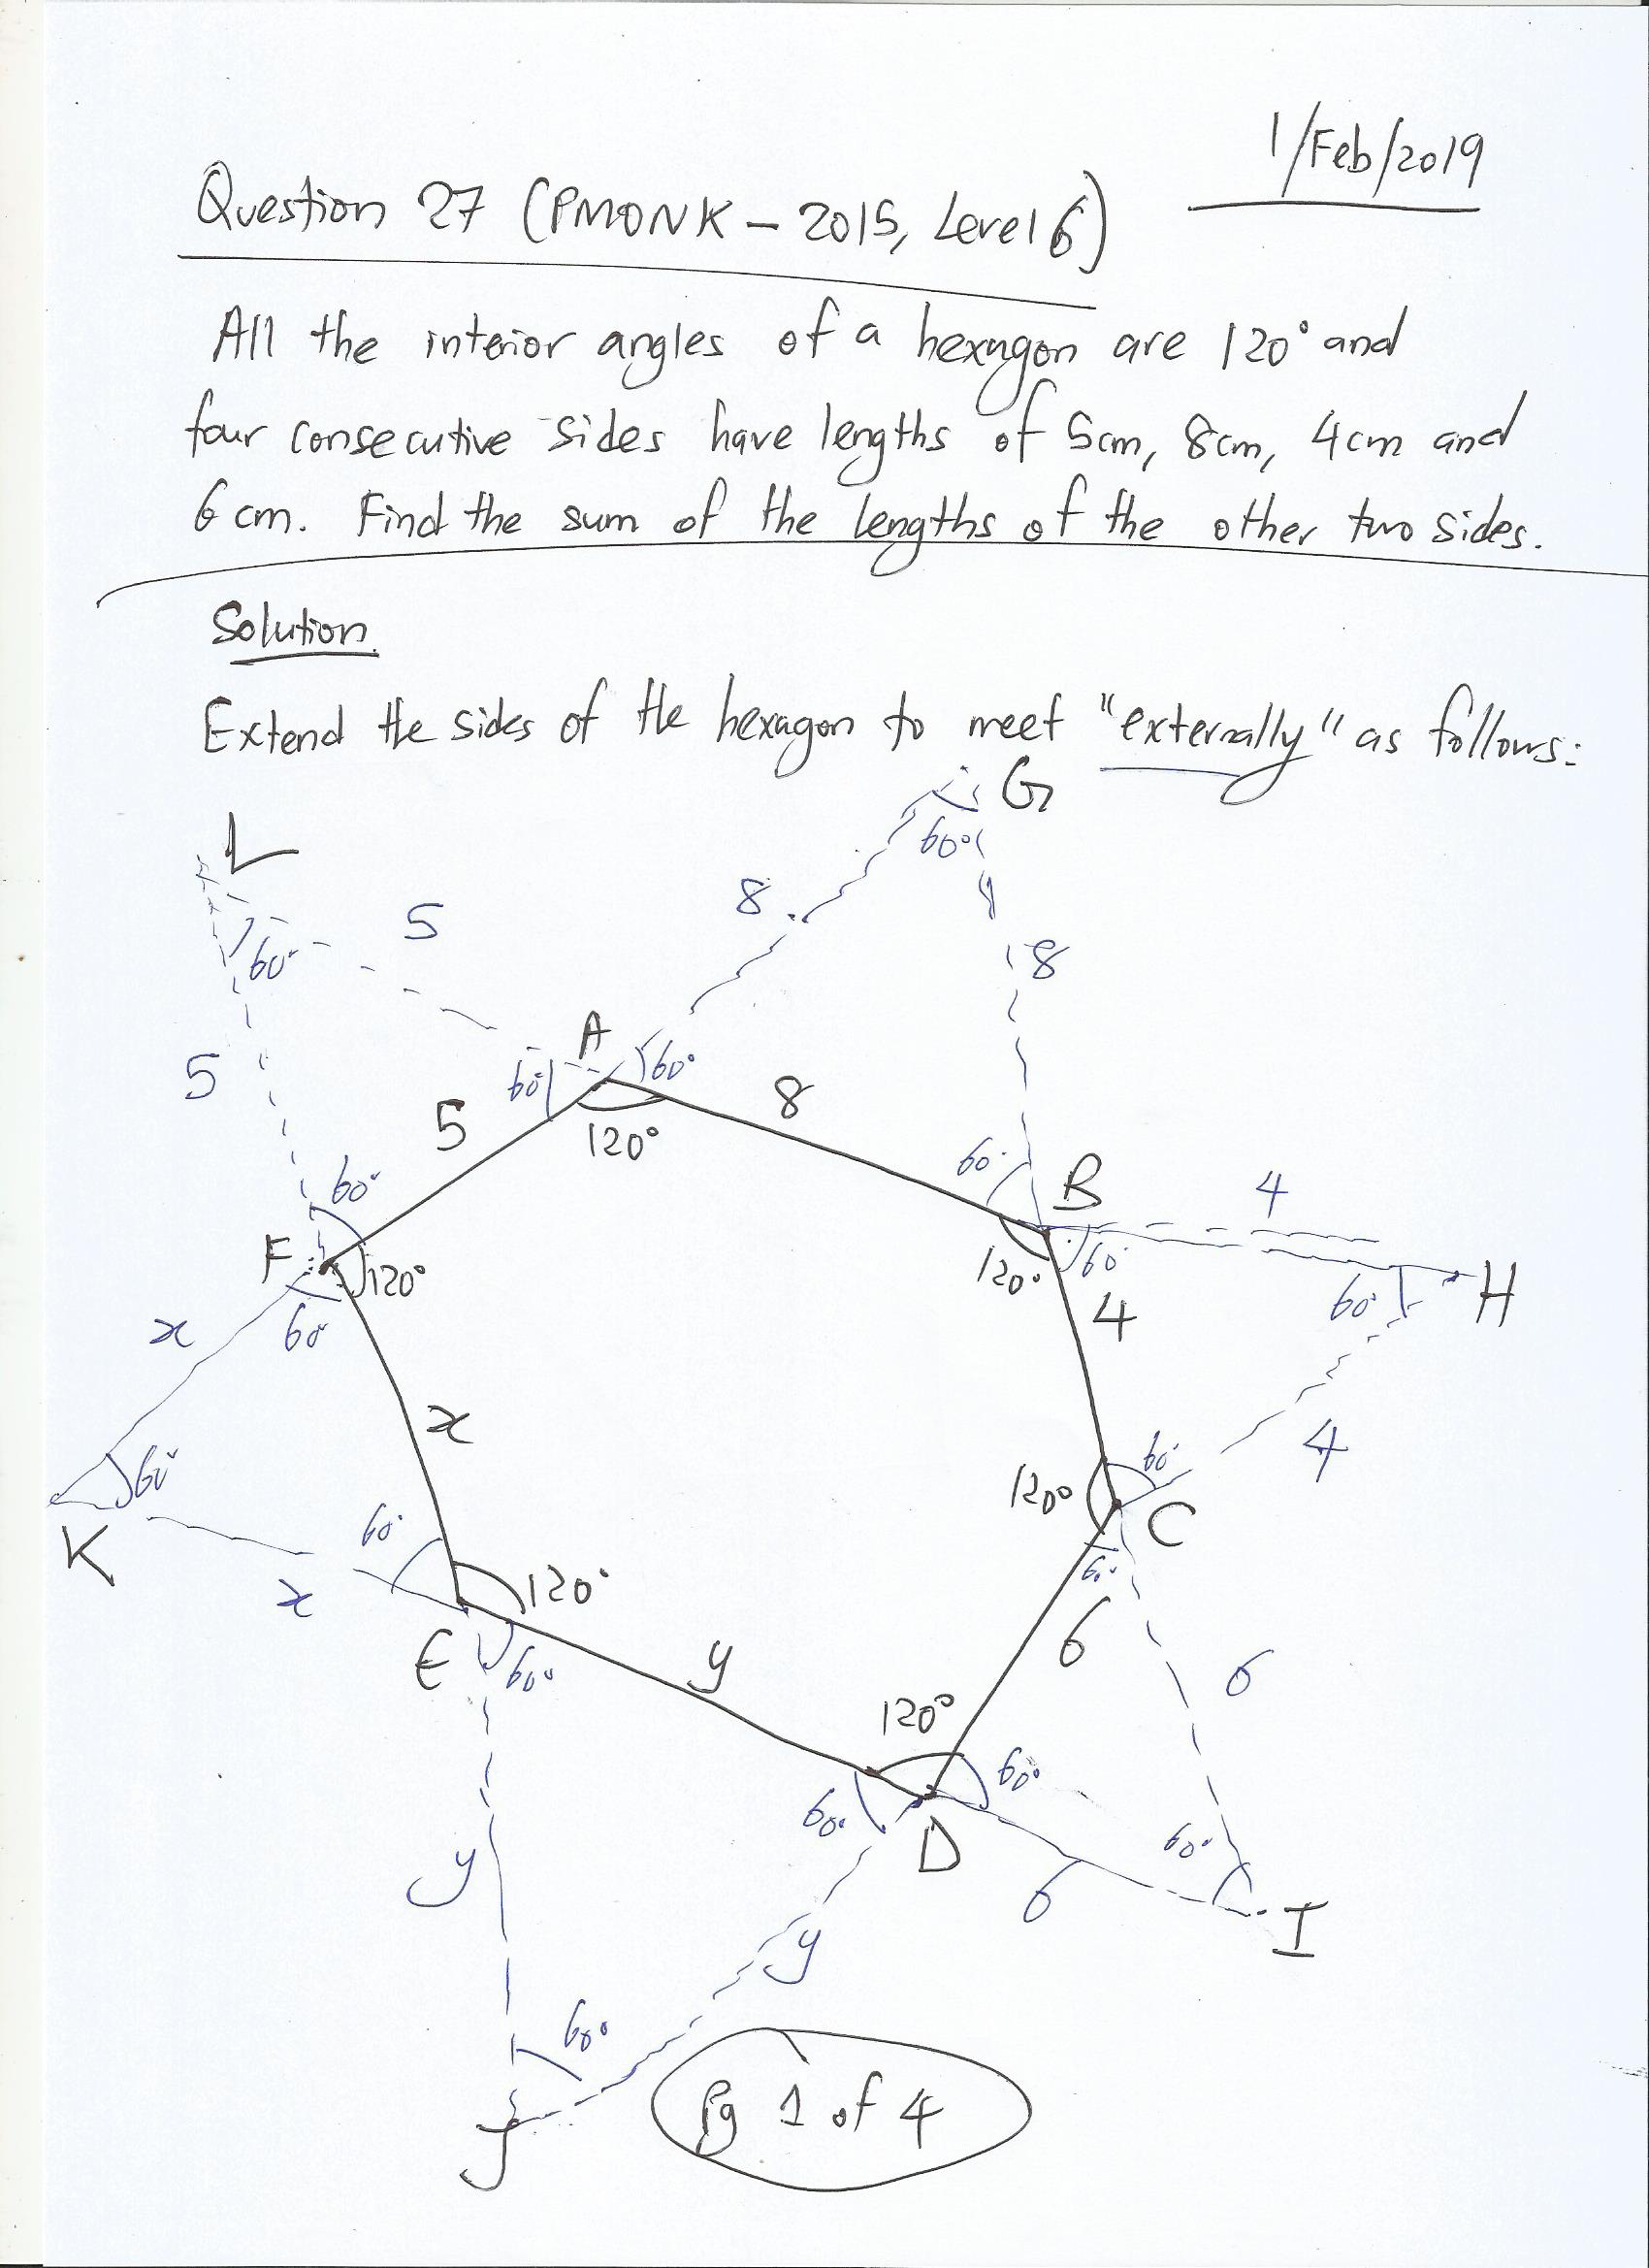 1/Feb/2019
Question 27 (PMONK - 2015, Level 6)
All the interior angles of a hexagon are 120° and
four consecutive sides have lengths of 5cm, 8cm, 4cm and
6 cm. Find the sum of the lengths of the other two sides.
Solution
Extend the sides of the hexagon to meet "externally" as follows:
G
L
60°
8
5
60°
8
A
5
60°
60°
5
8
120°
60°
B
60°
4
F
120°
120°
60°
H
60°
60°
x
4
x
60°
4
60°
120°
C
K
60°
60°
x
120°
E
60°
6
y
6
120°
60°
60°
D
60°
y
6
I
y
60°
J
Pg 1 of 4